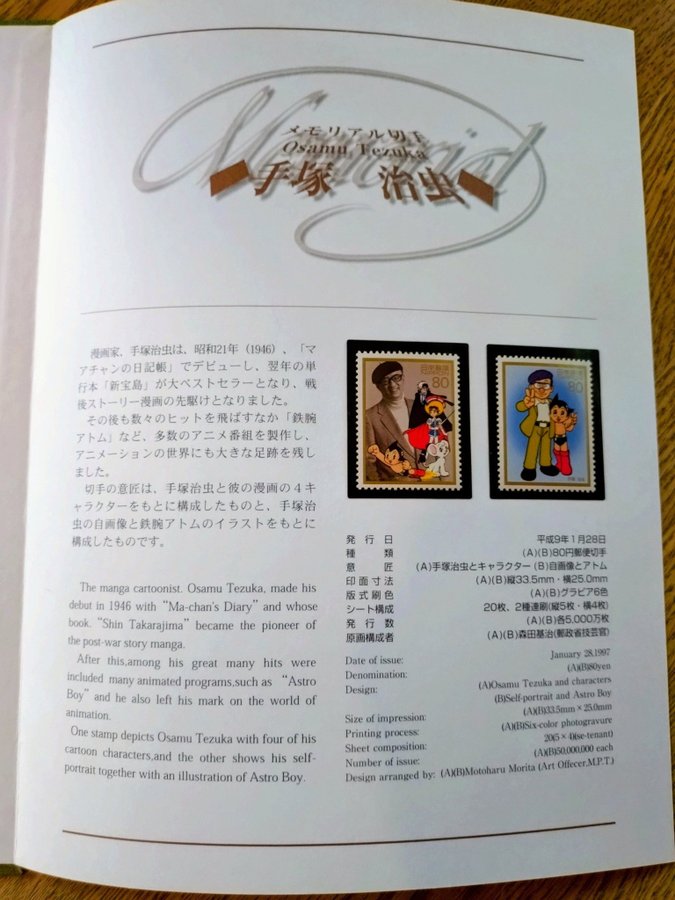 Memorial
メモリアル切手
Osamu Tezuka
手塚 治虫
漫画家、手塚治虫は、昭和21年（1946）、「マ
アチャンの日記帳」でデビューし、翌年の単
行本「新宝島」が大ベストセラーとなり、戦
後ストーリー漫画の先駆けとなりました。
その後も数々のヒットを飛ばすなか「鉄腕
アトム」など、多数のアニメ番組を製作し、
アニメーションの世界にも大きな足跡を残し
ました。
切手の意匠は、手塚治虫と彼の漫画の４キ
ャラクターをもとに構成したものと、手塚治
虫の自画像と鉄腕アトムのイラストをもとに
構成したものです。
The manga cartoonist. Osamu Tezuka, made his
debut in 1946 with “Ma-chan's Diary” and whose
book. “Shin Takarajima” became the pioneer of
the post-war story manga.
After this,among his great many hits were
included many animated programs,such as “Astro
Boy” and he also left his mark on the world of
animation.
One stamp depicts Osamu Tezuka with four of his
cartoon characters,and the other shows his self-
portrait together with an illustration of Astro Boy.
日本郵便
80
日本郵便
80
発行日 平成9年1月28日
種類 (A)(B)80円郵便切手
意匠 (A)手塚治虫とキャラクター (B)自画像とアトム
印面寸法 (A)(B)縦33.5mm・横25.0mm
版式刷色 (A)(B)グラビア6色
シート構成 20枚、2種連刷(縦5枚・横4枚)
発行数 (A)(B)各5.000万枚
原画構成者 (A)(B)森田基治(郵政省技芸官)
Date of issue: January 28.1997
Denomination: (A)(B)80yen
Design: (A)Osamu Tezuka and characters
(B)Self-portrait and Astro Boy
Size of impression: (A)(B)33.5mm×25.0mm
Printing process: (A)(B)Six-color photogravure
Sheet composition: 20(5×4)(se-tenant)
Number of issue: (A)(B)50,000,000 each
Design arranged by: (A)(B)Motoharu Morita (Art Offecer,M.P.T.)